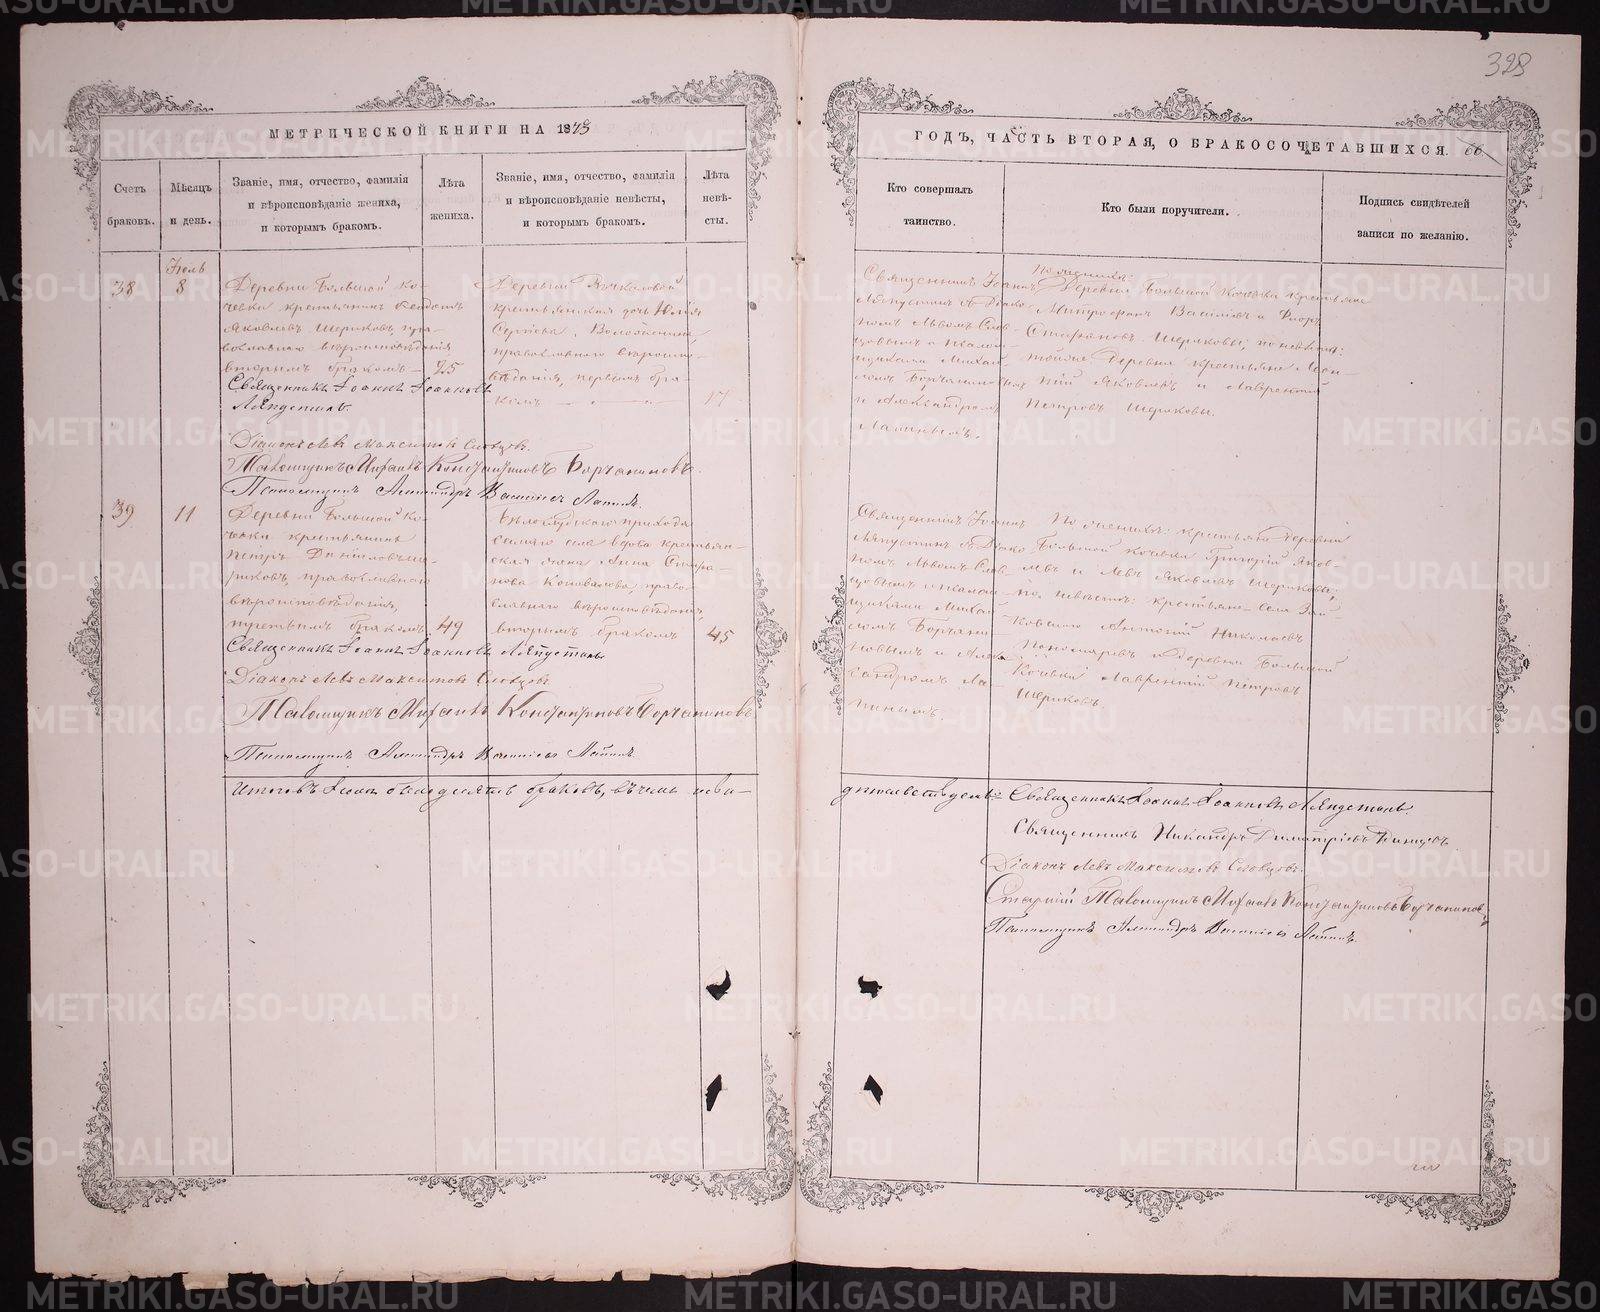 328
МЕТРИЧЕСКОЙ КНИГИ НА 1873
ГОДЪ, ЧАСТЬ ВТОРАЯ, О БРАКОСОЧЕТАВШИХСЯ. 66.
Счетъ
браковъ.
Мѣсяцъ
и день.
Званіе, имя, отчество, фамилія
и вѣроисповѣданіе жениха,
и которымъ бракомъ.
Лѣта
жениха.
Званіе, имя, отчество, фамилія
и вѣроисповѣданіе невѣсты,
и которымъ бракомъ.
Лѣта
невѣ-
сты.
Кто совершалъ
таинство.
Кто были поручители.
Подпись свидѣтелей
записи по желанію.
38
Іюль
8
Деревни Большой Ко-
чевки крестьянинъ
Яковлевъ Шериковъ, пра-
вославнаго вѣроисповѣданія
вторымъ бракомъ
25
Деревни
крестьянская дочь Юлія
Сергіева
православнаго вѣроиспо-
вѣданія, первымъ бра-
комъ
17
Священникъ Іоаннъ
Ляпустинъ съ Діако-
номъ Львомъ Слов-
цовымъ и псалом-
щиками Михаи-
ломъ Борчанино-
и Александромъ
Лапинымъ.
По женихѣ:
Деревни Большой Кочевки крестьяне
Митрофанъ Васильевъ и Флоръ
Стефановъ Шериковы; по невѣстѣ:
тойже деревни крестьяне
Яковлевъ и Лаврентій
Петровъ Шериковы.
Священникъ Іоаннъ Іоанновъ
Ляпустинъ.
Діаконъ Левъ Максимовъ Словцовъ.
Псаломщикъ Михаилъ Константиновъ Борчаниновъ.
Псаломщикъ Александръ Васильевъ Лапинъ.
39
11
Деревни Большой Ко-
чевки крестьянинъ
Петръ Даниловъ Ше-
риковъ, православнаго
вѣроисповѣданія,
третьимъ бракомъ
49
Бѣлослудскаго прихода
самаго села вдова крестьян-
ская жена Анна Стефа-
нова Коновалова, право-
славнаго вѣроисповѣданія,
вторымъ бракомъ
45
Священникъ Іоаннъ
Ляпустинъ съ Діако-
номъ Львомъ Слов-
цовымъ и псалом-
щиками Михаи-
ломъ Борчани-
новымъ и Алек-
сандромъ Ла-
пинымъ.
По женихѣ: крестьяне деревни
Большой Кочевки Григорій Яков-
левъ и Левъ Яковлевъ Шериковы;
по невѣстѣ: крестьяне села Зай-
ковскаго Антоній Николаевъ
Пономаревъ и деревни Большой
Кочевки Лаврентій Петровъ
Шериковъ.
Священникъ Іоаннъ Іоанновъ Ляпустинъ
Діаконъ Левъ Максимовъ Словцовъ
Псаломщикъ Михаилъ Константиновъ Борчаниновъ
Псаломщикъ Александръ Васильевъ Лапинъ.
браковъ, въ чемъ сви-
дѣтельствуемъ: Священникъ Іоаннъ Іоанновъ Ляпустинъ.
Священникъ Никандръ Димитріевъ
Діаконъ Левъ Максимовъ Словцовъ.
Старшій Псаломщикъ Михаилъ Константиновъ Борчаниновъ
Псаломщикъ Александръ Васильевъ Лапинъ.
METRIKI.GASO-URAL.RU